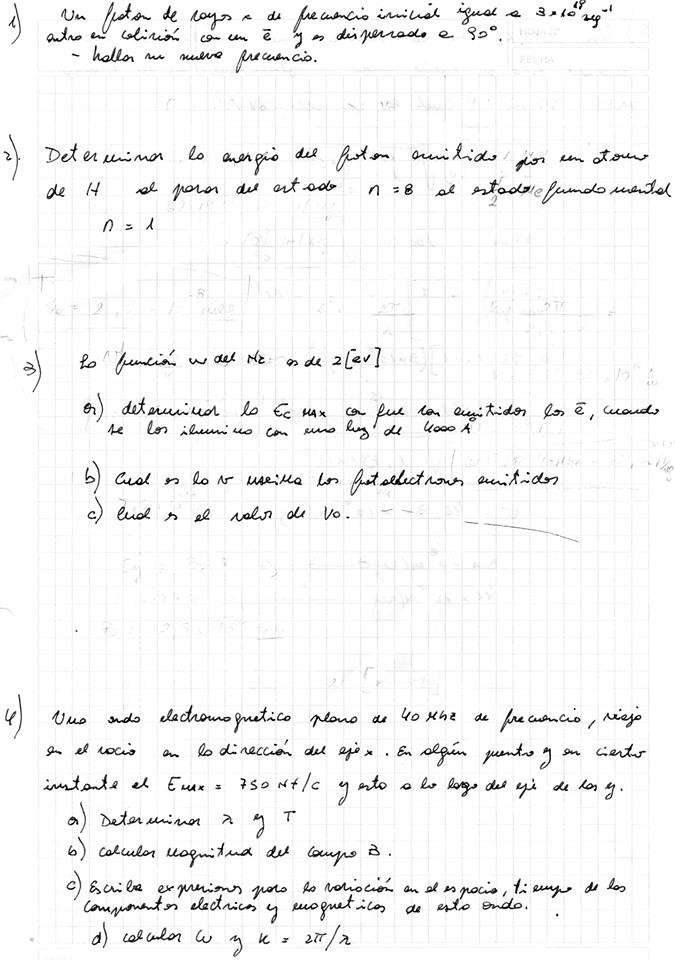 1) Un foton de rayos x de frecuencia inicial igual a 3×10¹⁹ seg⁻¹
entra en colisión con un ē y es dispersado a 90°.
- hallar su nueva frecuencia.
2). Determinar la energia del foton emitido por un atomo
de H al pasar del estado n = 8 al estado fundamental
n = 1
3) La función w del Na es de 2[ev]
a) determinar la Ec MAX con que son emitidos los ē, cuando
se los ilumina con una luz de 4000 Å
b) Cual es la v maxima los fotoelectrones emitidos
c) Cual es el valor de Vo.
4) Una onda electromagnetica plana de 40 MHz de frecuencia, viaja
en el vacio en la dirección del eje x. En algún punto y en cierto
instante el EMAX = 750 Nt/c y esta a lo largo del eje de las y.
a) Determinar λ y T
b) calcular magnitud del campo B.
c) Escriba expresiones para la variación en el espacio, tiempo de las
componentes electricas y magneticas de esta onda.
d) calcular ω y K = 2π/λ
HOJA N°
FECHA